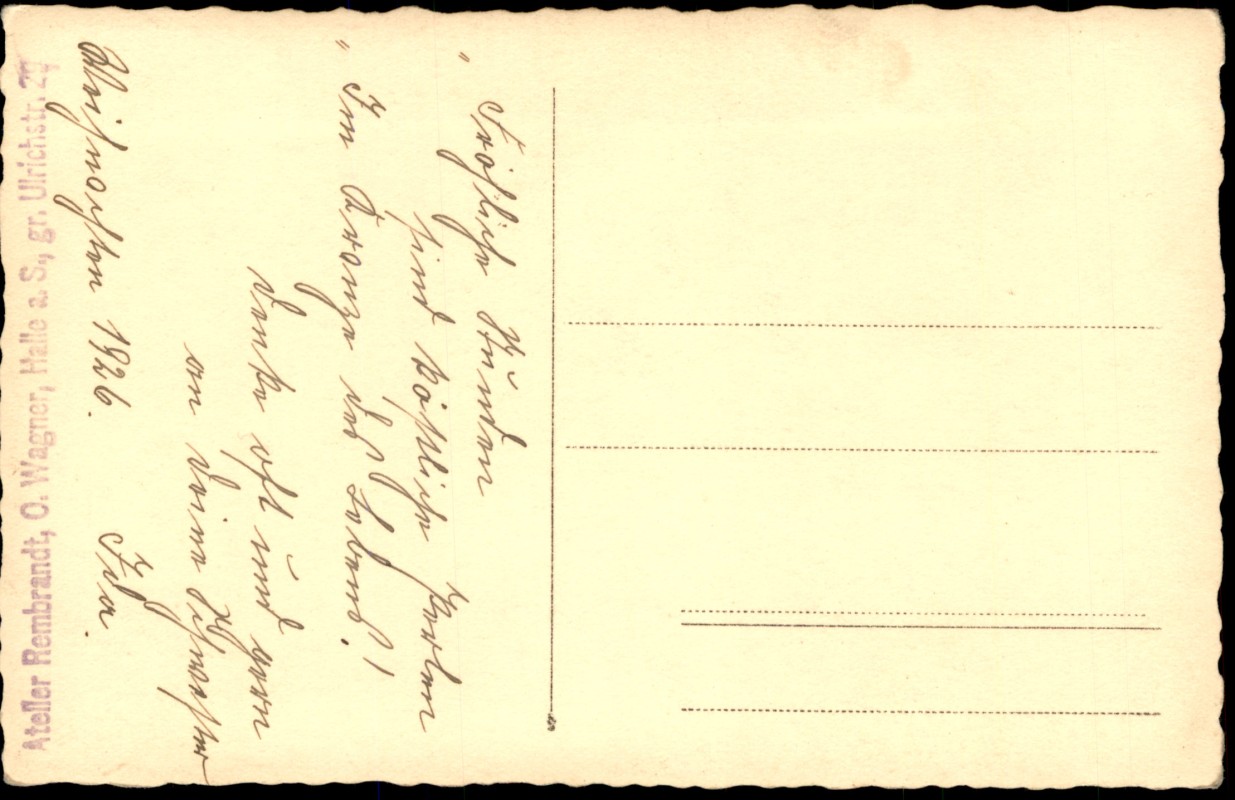 „Fröhliche Stunden
sind köstliche Perlen
„Im Kranze des Lebens“!
Denke oft und gern
an Deine Schwester
Ida.
Weihnachten 1926.
Atelier Rembrandt, O. Wagner, Halle a. S., gr. Ulrichstr. 29